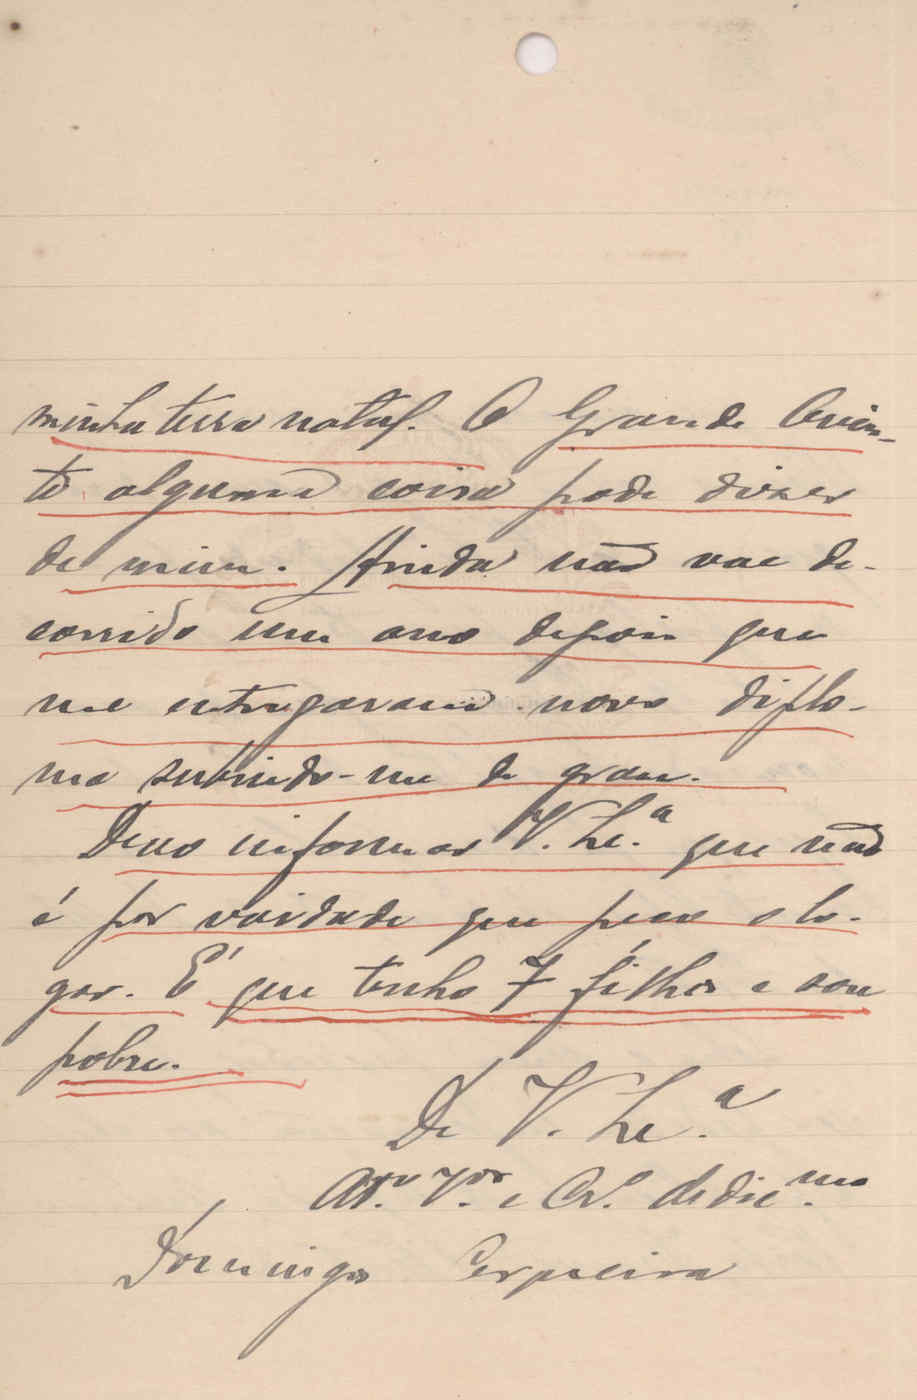 minha terra natal. O Grande Orien-
te alguma coisa pode dizer
de mim. Ainda não vae de-
corrido um ano depois que
me entregaram novo diplo-
ma subindo-me de grau.
Devo informar V. Ex.ª que não
é por vaidade que peço o lo-
gar. É que tenho 7 filhos e sou
pobre.
De V. Ex.ª
At.º V.ºr e Cr.º dedic.mo
Domingos Cerqueira